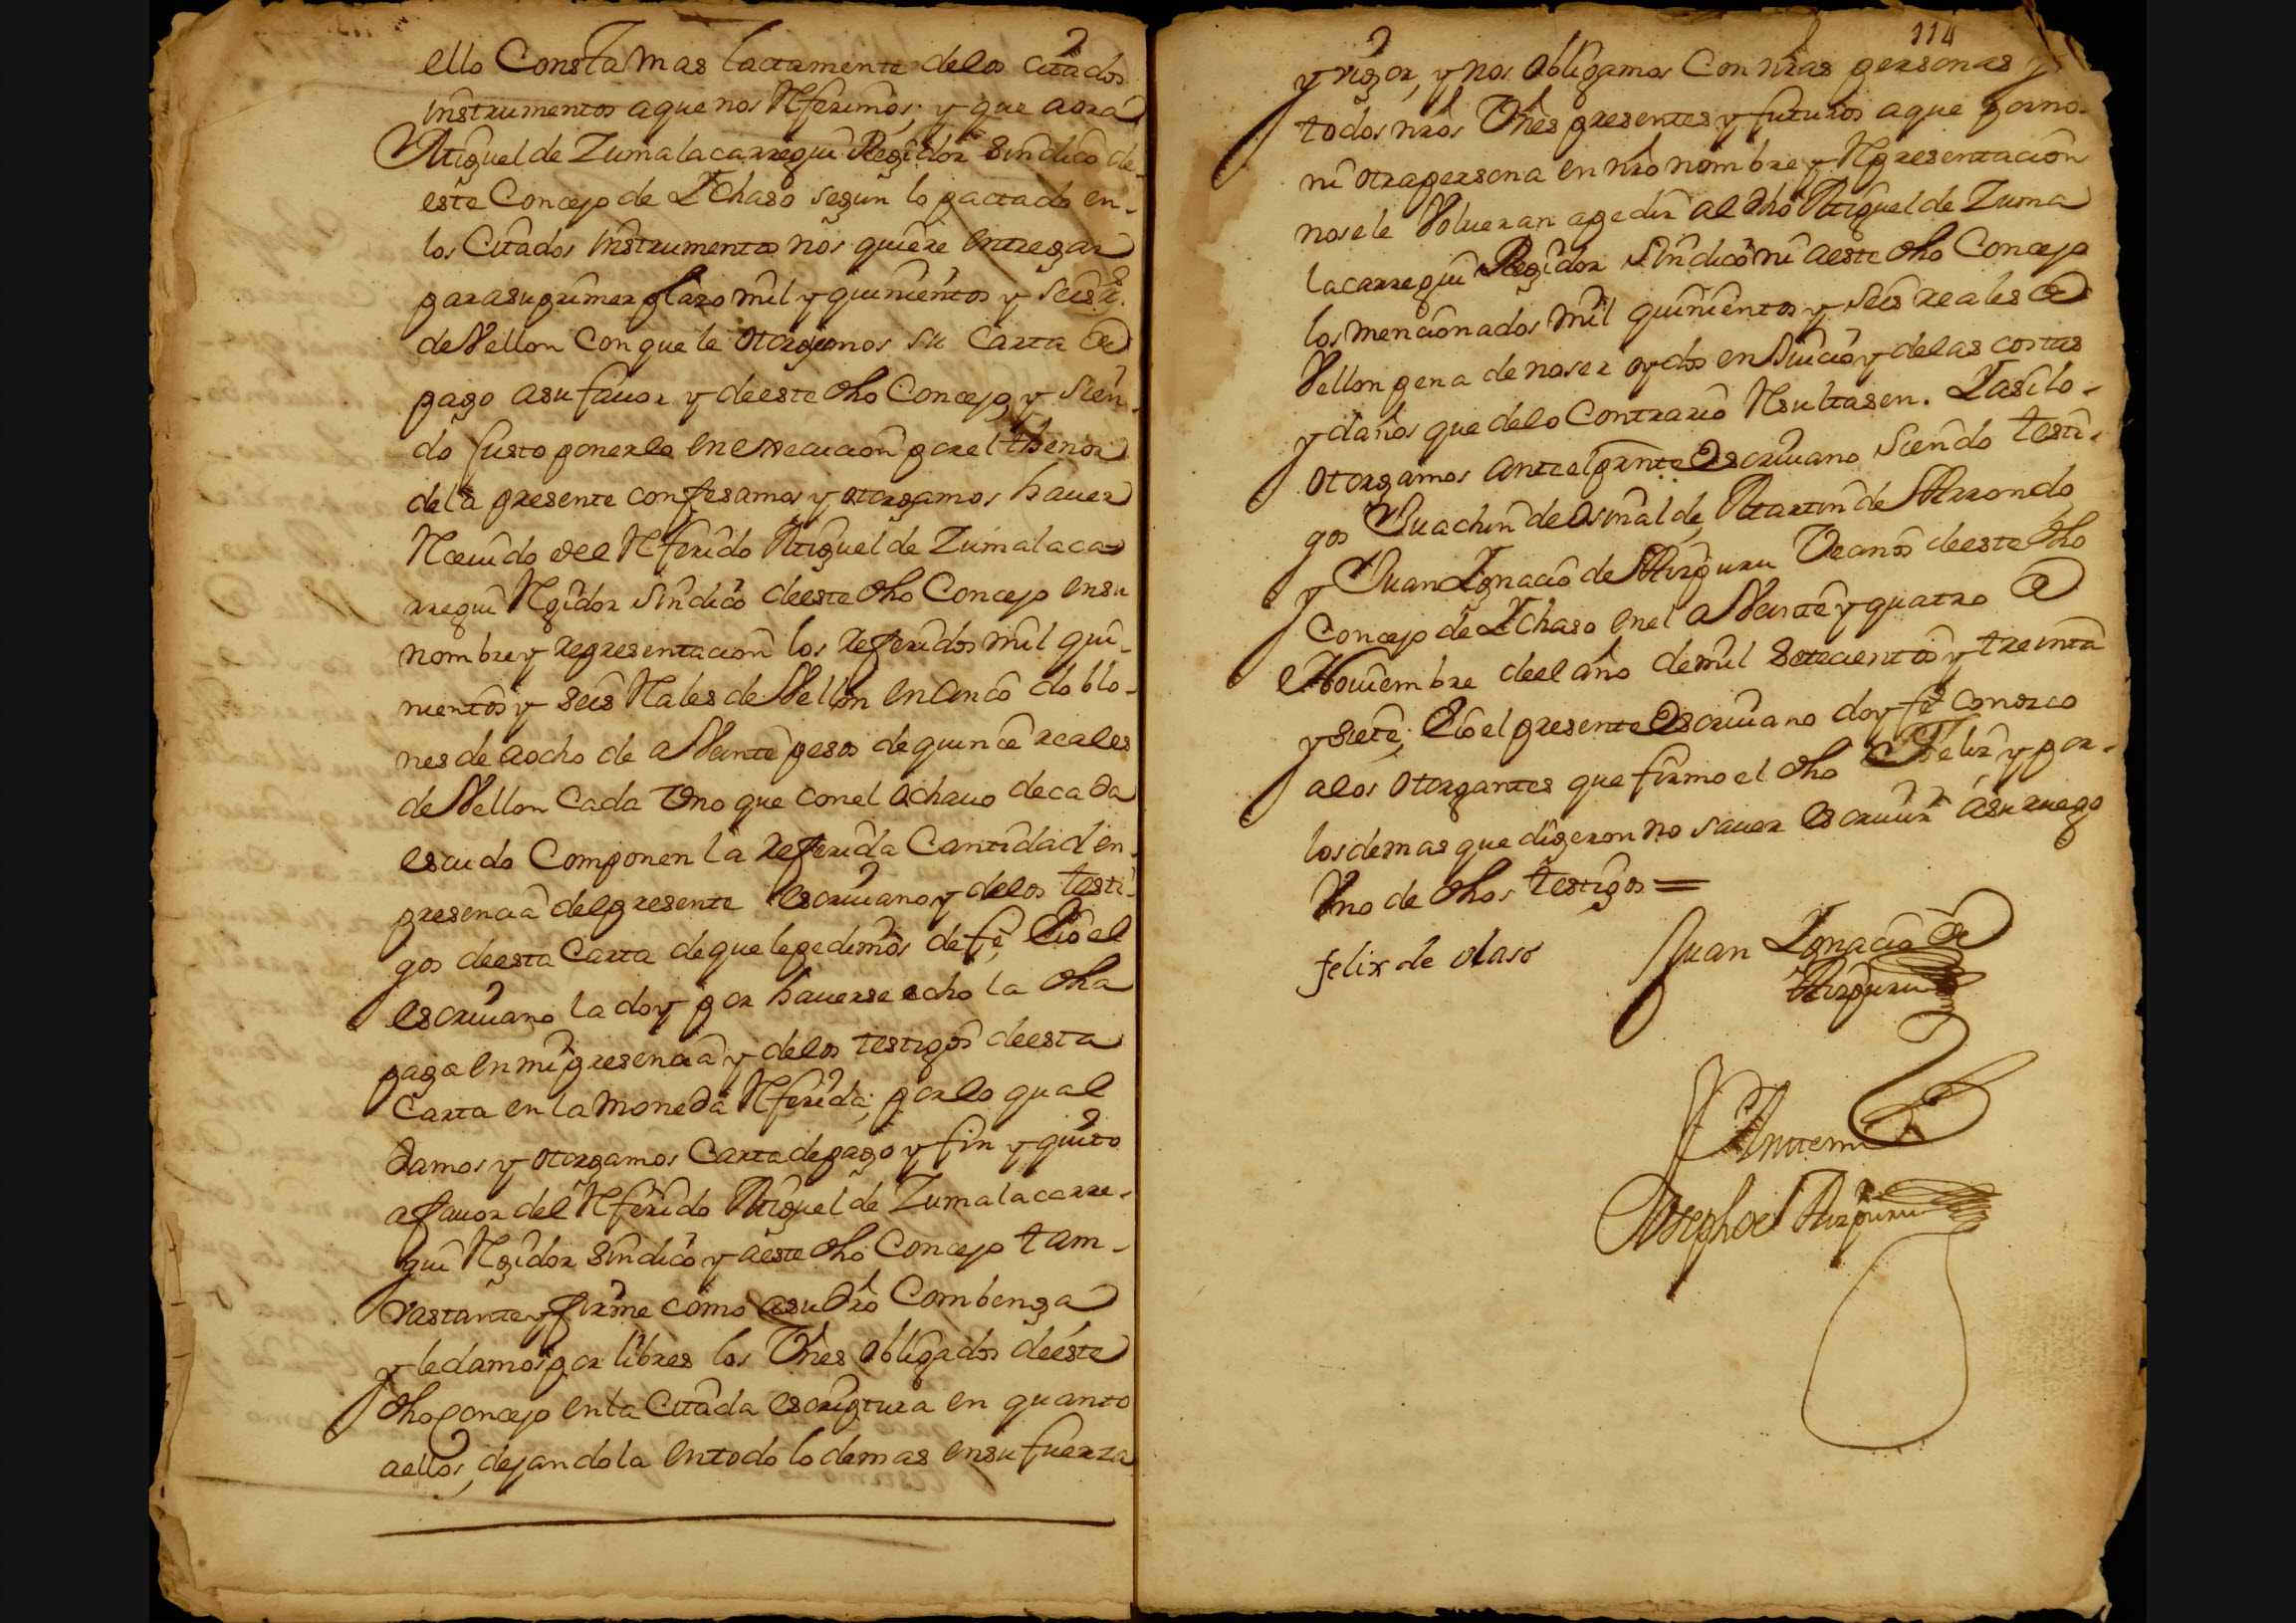 ello Consta mas lactamente delos citados
instrumentos aque nos Referimos; y que aora
Miguel de Zumalacarregui Regidor Sindico de
este Concejo de Ychaso segun lo pactado en
los Citados instrumentos nos quiere entregar
para su primer plazo mil y quinientos y seis rs.
de Vellon con que le otorguemos su Carta de
pago a su fauor y de este dho Concejo, y sien
do Justo ponerlo en execucion por el thenor
de la presente confesamos y otorgamos hauer
Reciuido del Referido Miguel de Zumalaca
rregui Regidor Sindico de este dho Concejo en su
nombre y representacion los referidos mil qui
nientos y seis Reales de Vellon en cinco doblo
nes de aocho de a Veinte pesos de quince reales
de Vellon Cada Vno que con el ochauo de cada
escudo Componen la referida Cantidad en
presencia del presente escriuano y delos testi
gos de esta Carta de que le pedimos de fe, Eio el
escriuano la doy por hauerse echo la dha
paga en mi presencia y delos testigos de esta
Carta en la moneda Referida; por lo qual
damos y otorgamos Carta de pago y fin y quito
a fauor del Referido Miguel de Zumalacarre
gui Regidor Sindico y a este dho Concejo tam
vastante y firme como a su dro Combenga
y le damos por libres los Vnes obligados de este
dho Concejo en la Citada escriptura en quanto
a ellos, dejandola en todo lo demas en su fuerza
114
y vigor, y nos obligamos Con nras personas y
todos nros Vnes presentes y futuros a que por no
ni otra persona en nro nombre y Representacion
no se le Volueran a pedir al dho Miguel de Zuma
lacarregui Regidor Sindico ni a este dho Concejo
los mencionados mil quinientos y seis reales de
Vellon pena de no ser oydos en Juicio y delas costas
y daños que de lo Contrario Resultasen. Y asi lo
otorgamos ante el prnte Escriuano siendo testi
gos Juachin de Osinalde, Martin de Arrondo
y Juan Ygnacio de Aizpuru Vecinos de este dho
Concejo de Ychaso en el a Veinte y quatro de
Nouiembre de el año de mil setecientos y treinta
y siete, Eio el presente Escriuano doy fe conozco
a los otorgantes que firmo el dho Felix y por
los demas que digeron no sauer escriuir a su ruego
Vno de dhos testigos =
felix de olaso
Juan Ygnacio de
Aizpuru
Antemi
Joseph de Aizpuru